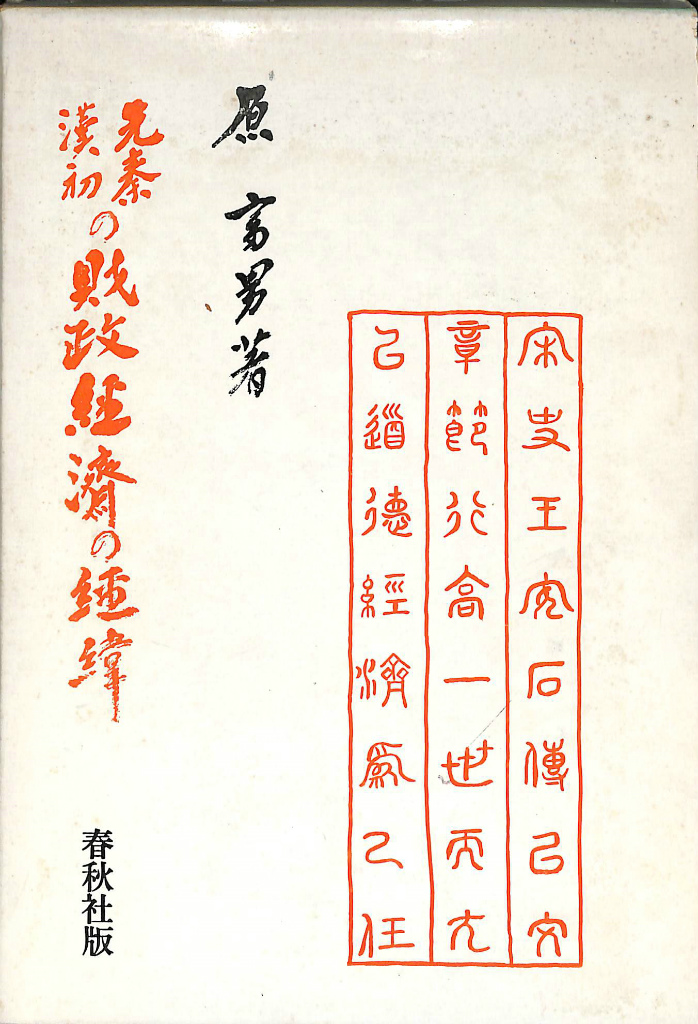 宋史王安石傳以文
章節行高一世而尤
以道德經濟爲己任
原 富男著
先秦漢初の財政經濟の經緯
春秋社版